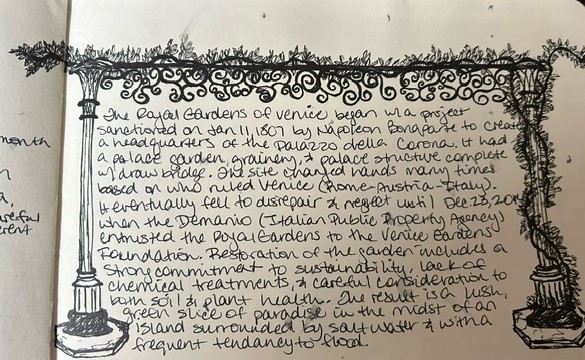 month
n
a,
careful
erent
The Royal Gardens of Venice began w/a project
sanctioned on Jan 11, 1807 by Napoleon Bonaparte to create
a headquarters of the Palazzo della Corona. It had
a palace garden, grainery, & palace structure complete
w/ draw bridge. The site changed hands many times
based on who ruled Venice (Rome-Austria-Italy).
It eventually fell to disrepair & neglect until Dec 23,
when the Demanio (Italian Public Property Agency)
entrusted the Royal Gardens to the Venice Gardens
Foundation. Restoration of the garden includes a
strong commitment to sustainability, lack of
chemical treatments, & careful consideration to
both soil & plant health. The result is a lush,
green slice of paradise in the midst of an
island surrounded by salt water & with a
frequent tendancy to flood.